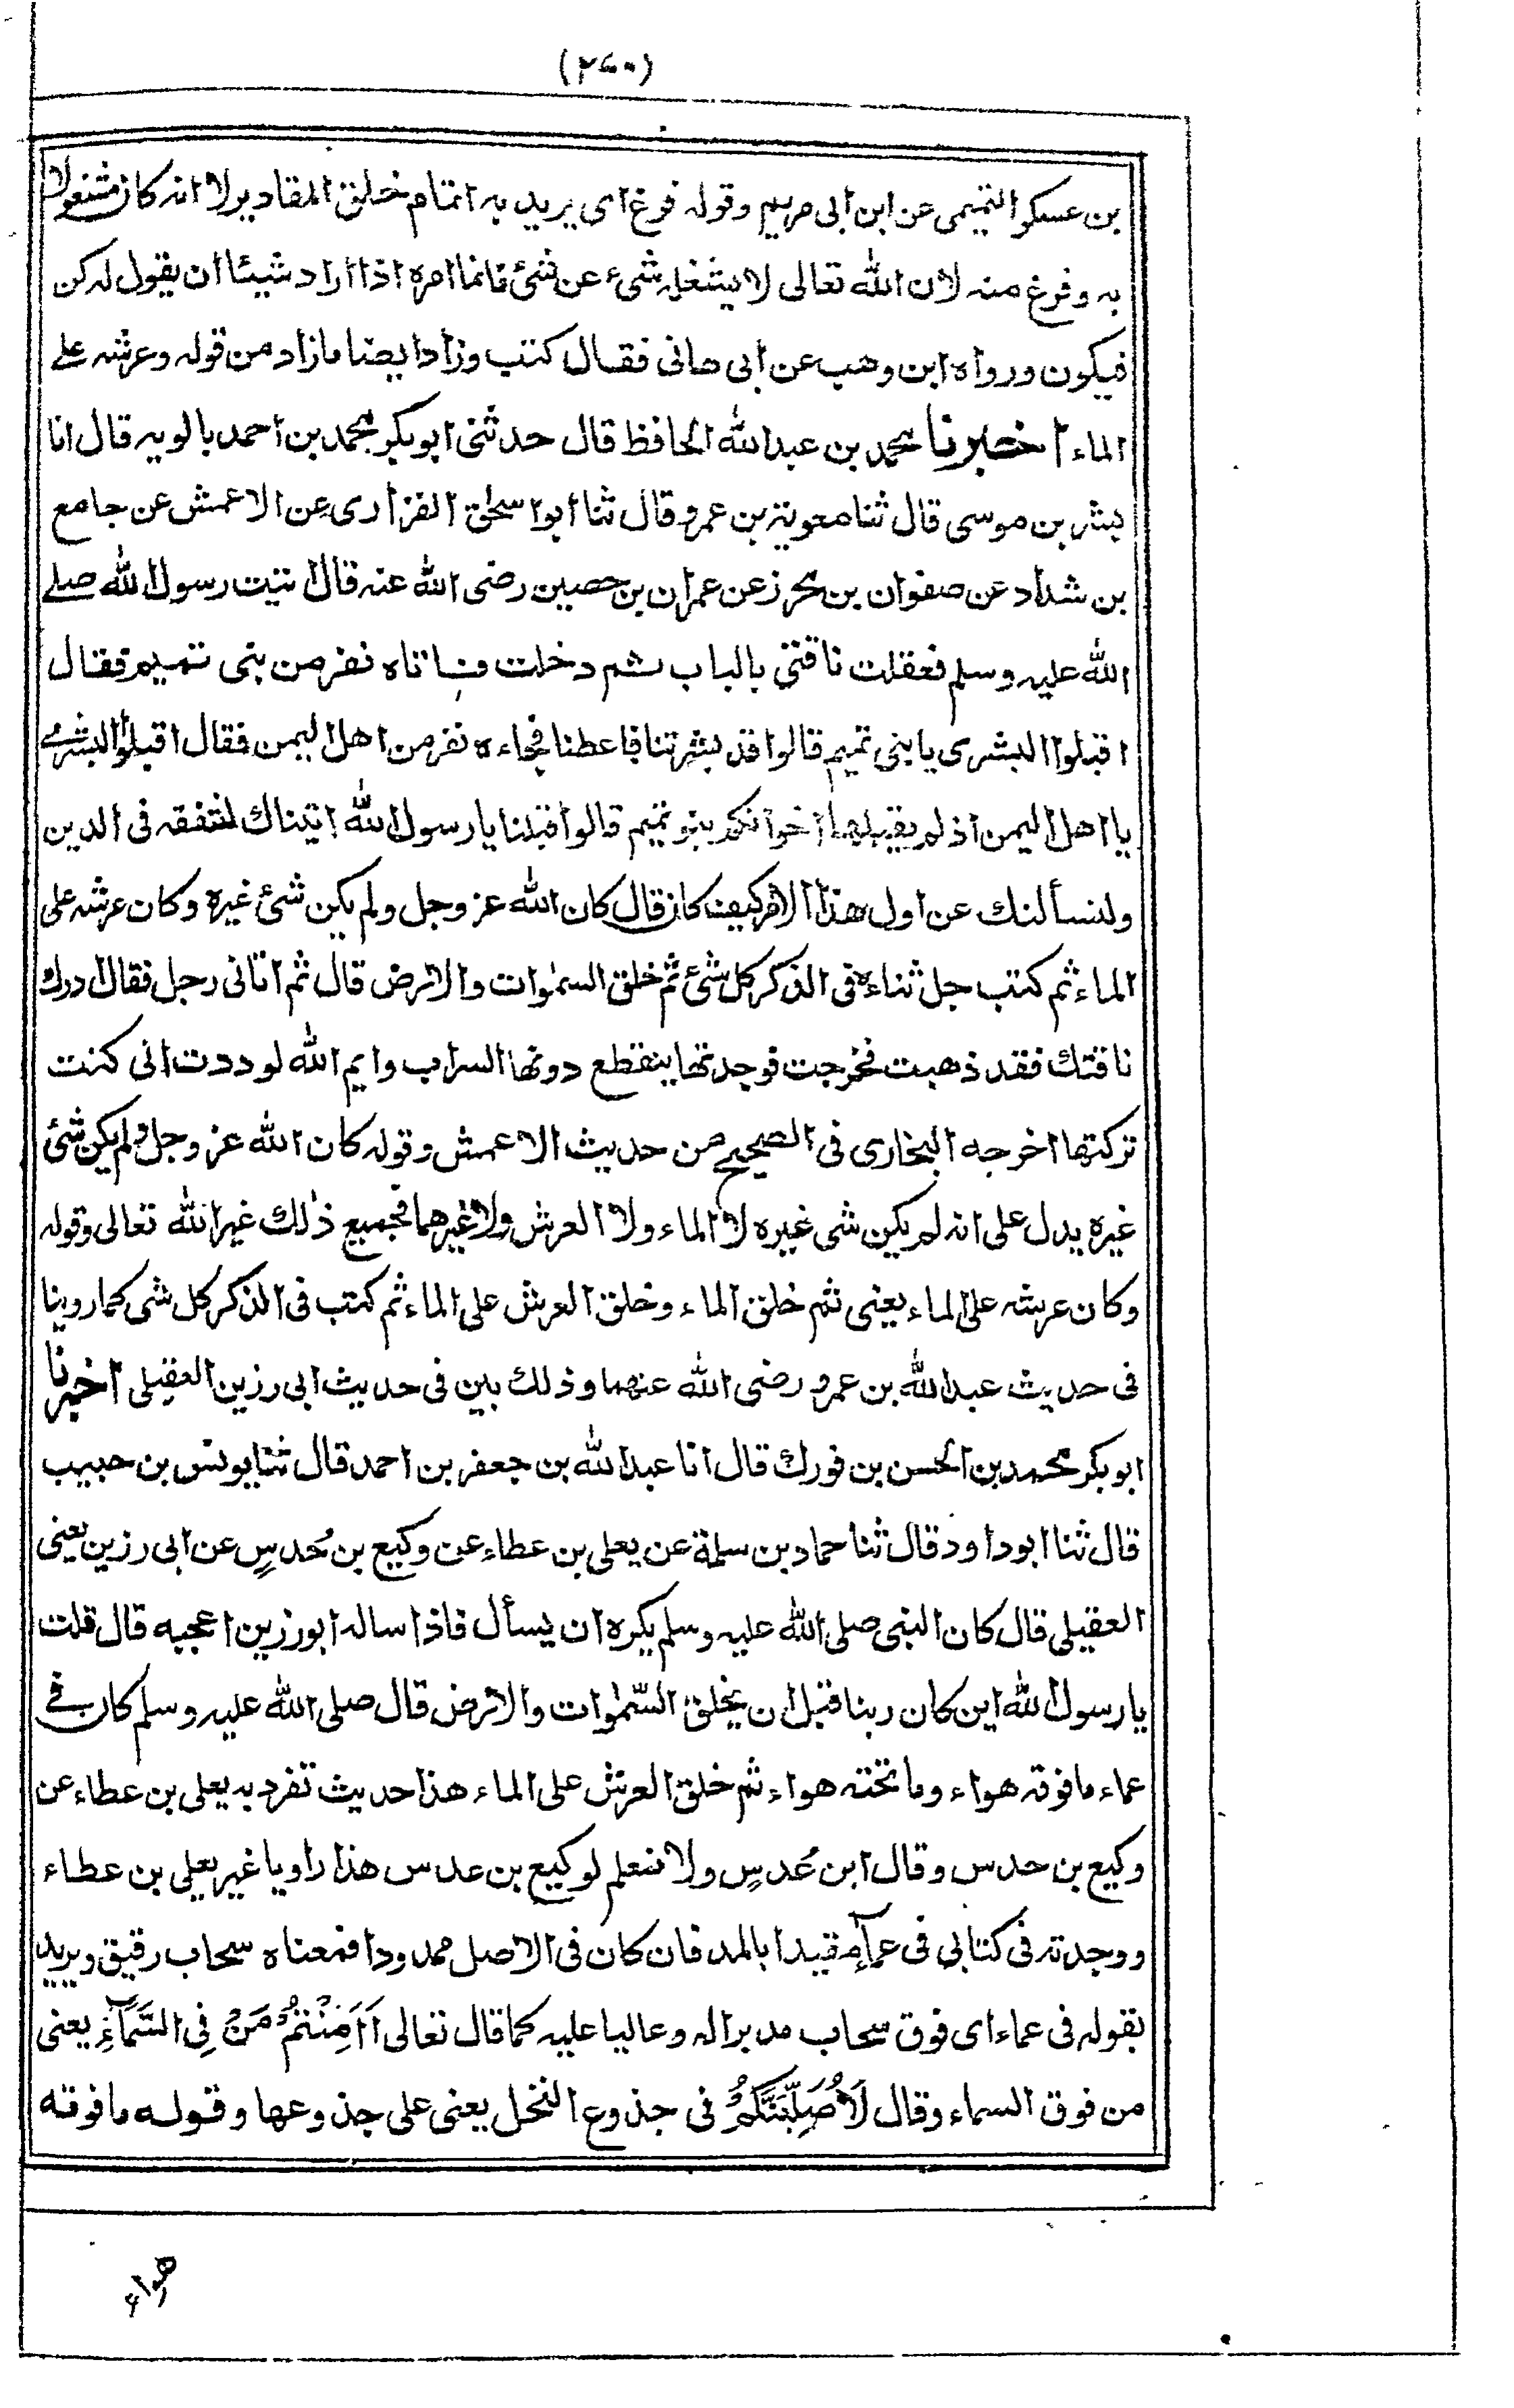 (٢٧٠)
بن عسكر التميمى عن ابن ابى مريم وقوله فرغ اى يريد به اتمام خلق المقادير لا انه كان مشغولا
به وفرغ منه لان الله تعالى لا يشغله شىء عن شئ فانما امره اذا اراد شيئا ان يقول له كن
فيكون ورواه ابن وهب عن ابى هانى فقال كتب وزاد ايضا مازاد من قوله وعرشه على
الماء اخبرنا محمد بن عبد الله الحافظ قال حدثنى ابو بكر محمد بن احمد بالويه قال انا
بشر بن موسى قال ثنا معوية بن عمرو قال ثنا ابو اسحٰق الفزارى عن الاعمش عن جامع
بن شداد عن صفوان بن محرز عن عمران بن حصين رضى الله عنه قال اتيت رسول الله صلى
الله عليه وسلم فعقلت ناقتى بالباب ثم دخلت فاتاه نفر من بنى تميم فقال
اقبلوا البشرى يا بنى تميم قالوا قد بشرتنا فاعطنا فجاءه نفر من اهل اليمن فقال اقبلوا البشرى
يا اهل اليمن اذ لم يقبلها اخوانكم بنو تميم قالوا قبلنا يا رسول الله اتيناك لنتفقه فى الدين
ولنسألنك عن اول هذا الامر كيف كان قال كان الله عز وجل ولم يكن شئ غيره وكان عرشه على
الماء ثم كتب جل ثناءه فى الذكر كل شئ ثم خلق السمٰوات والارض قال ثم اتانى رجل فقال ادرك
ناقتك فقد ذهبت فخرجت فوجدتها ينقطع دونها السراب وايم الله لوددت انى كنت
تركتها اخرجه البخارى فى الصحيح من حديث الاعمش وقوله كان الله عز وجل ولم يكن شئ
غيره يدل على انه لم يكن شى غيره لا الماء ولا العرش ولا غيرهما فجميع ذٰلك غير الله تعالى وقوله
وكان عرشه على الماء يعنى ثم خلق الماء وخلق العرش على الماء ثم كتب فى الذكر كل شى كما روينا
فى حديث عبد الله بن عمرو رضى الله عنهما وذلك بين فى حديث ابى رزين العقيلى اخبرنا
ابو بكر محمد بن الحسن بن فورك قال انا عبد الله بن جعفر بن احمد قال ثنا يونس بن حبيب
قال ثنا ابو داود قال ثنا حماد بن سلمة عن يعلى بن عطاء عن وكيع بن حُدسٍ عن ابى رزين يعنى
العقيلى قال كان النبى صلى الله عليه وسلم يكره ان يسأل فاذا ساله ابو رزين اعجبه قال قلت
يا رسول الله اين كان ربنا قبل ان يخلق السّمٰوات والارض قال صلى الله عليه وسلم كان فى
عماء ما فوقه هواء وما تحته هواء ثم خلق العرش على الماء هذا حديث تفرد به يعلى بن عطاء عن
وكيع بن حدس وقال ابن عُدسٍ ولا نعلم لوكيع بن عدس هذا راويا غير يعلى بن عطاء
ووجدته فى كتابى فى عمآءٍ مقيدا بالمد فان كان فى الاصل ممدودا فمعناه سحاب رقيق ويريد
بقوله فى عماء اى فوق سحاب مدبرا له وعاليا عليه كما قال تعالى اَاَمِنْتُمْ مَنْ فِى السَّمَآءِ يعنى
من فوق السماء وقال لَاُصَلِّبَنَّكُمْ فى جذوع النخل يعنى على جذوعها وقوله ما فوقه
هواء